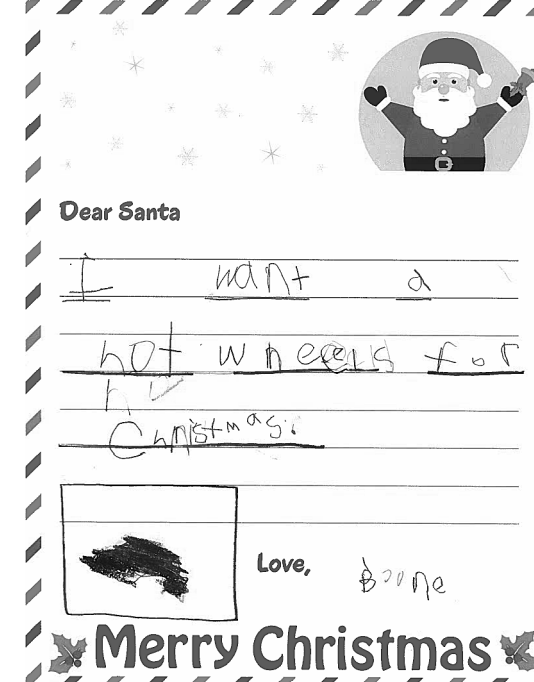 Dear Santa
I want a
hot wheels for
Christmas.
Love, Boone
Merry Christmas